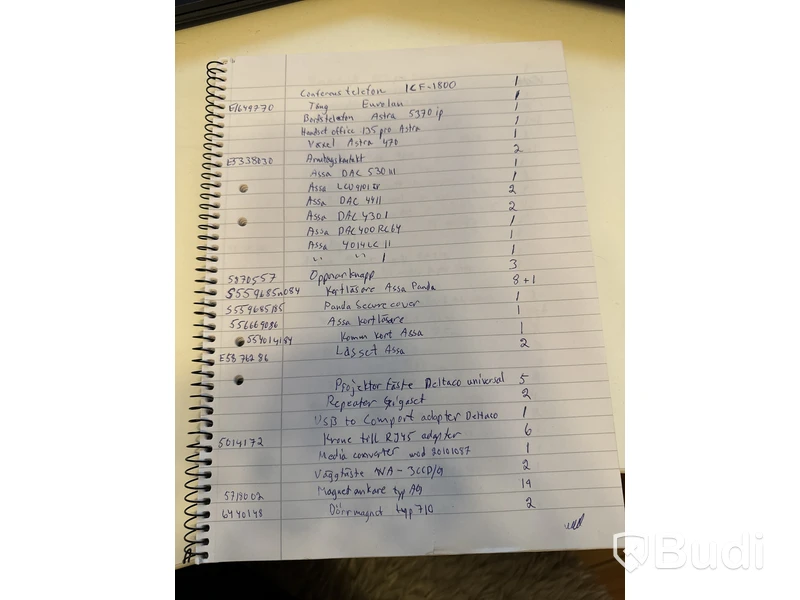 Conferens telefon IKF-1800 1
E1649770 Tång Eurolan 1
Bordstelefon Astra 5370 ip 1
Handset office 135 pro Astra 1
Växel Astra 470 1
E5338030 2
Assa DAC 530 1
Assa 1
Assa DAC 4411 2
Assa DAC 430 I 2
Assa DAC400RC64 1
Assa 4014LC II 1
" " 1 1
5870557 Öppnarknapp 3
Kortläsare Assa Panda 8+1
S559685185 Panda Secure cover 1
Assa kortläsare 1
Komm kort Assa 1
E5876286 Låsset Assa 2
Projektorfäste Deltaco universal 5
Repeater Gigaset 2
USB to Comport adapter Deltaco 1
5014172 Krone till RJ45 adapter 6
Media converter mod 20101087 1
Väggfäste WA-3CCD/G 2
5718002 Magnetankare typ 19
6440148 Dörrmagnet typ 710 2
Budi